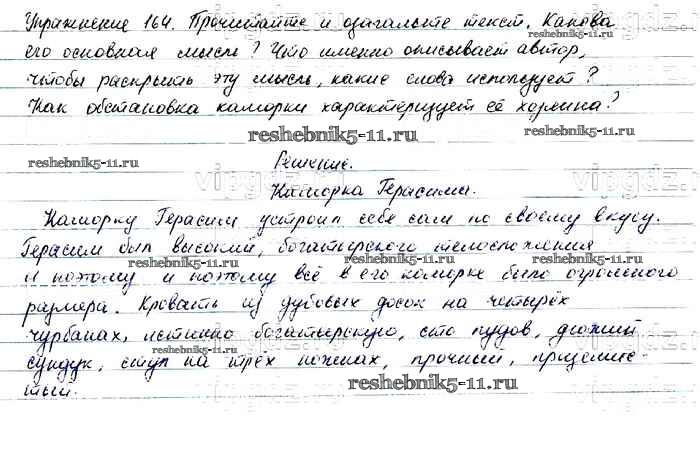 Упражнение 164. Прочитайте и озагальте текст. Какова
его основная мысль? Что именно описывает автор,
чтобы раскрыть эту мысль, какие слова использует?
Как обстановка каморки характеризует её хозяина?
reshebnik5-11.ru
reshebnik5-11.ru
Решение.
reshebnik5-11.ru
Каморка Герасима.
Каморку Герасим устроил себе сам по своему вкусу.
Герасим был высокий, богатырского телосложения
reshebnik5-11.ru
reshebnik5-11.ru
и поэтому и поэтому всё в его коморке было огромного
размера. Кровать из дубовых досок на четырёх
чурбанах, истинно богатырскую, сто пудов, дюжий
reshebnik5-11.ru
сундук, стул на трёх ножках, прочный, приземис-
reshebnik5-11.ru
тый.